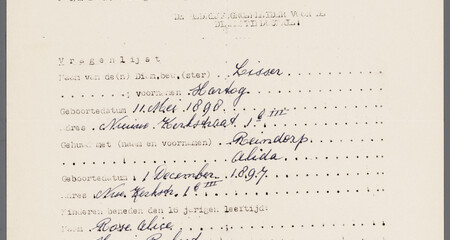 Vragenlijst
Naam van de(n) Dien.bew.(ster) Lisser
voornamen Hartog
Geboortedatum 11 Mei 1898
Adres Nieuwe Kerkstraat 1e III
Gehuwd met (naam en voornamen) Reindorp
Alida
Geboortedatum 1 December 1897
Adres Nwe Kerkstr. 1e III
Kinderen beneden den 16 jarigen leeftijd:
Naam Rose Alice